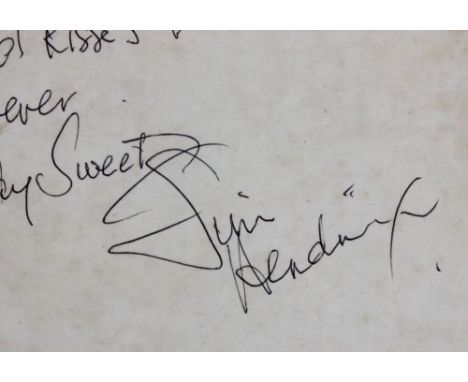 Kisses
ever
Sweet
Jimi Hendrix